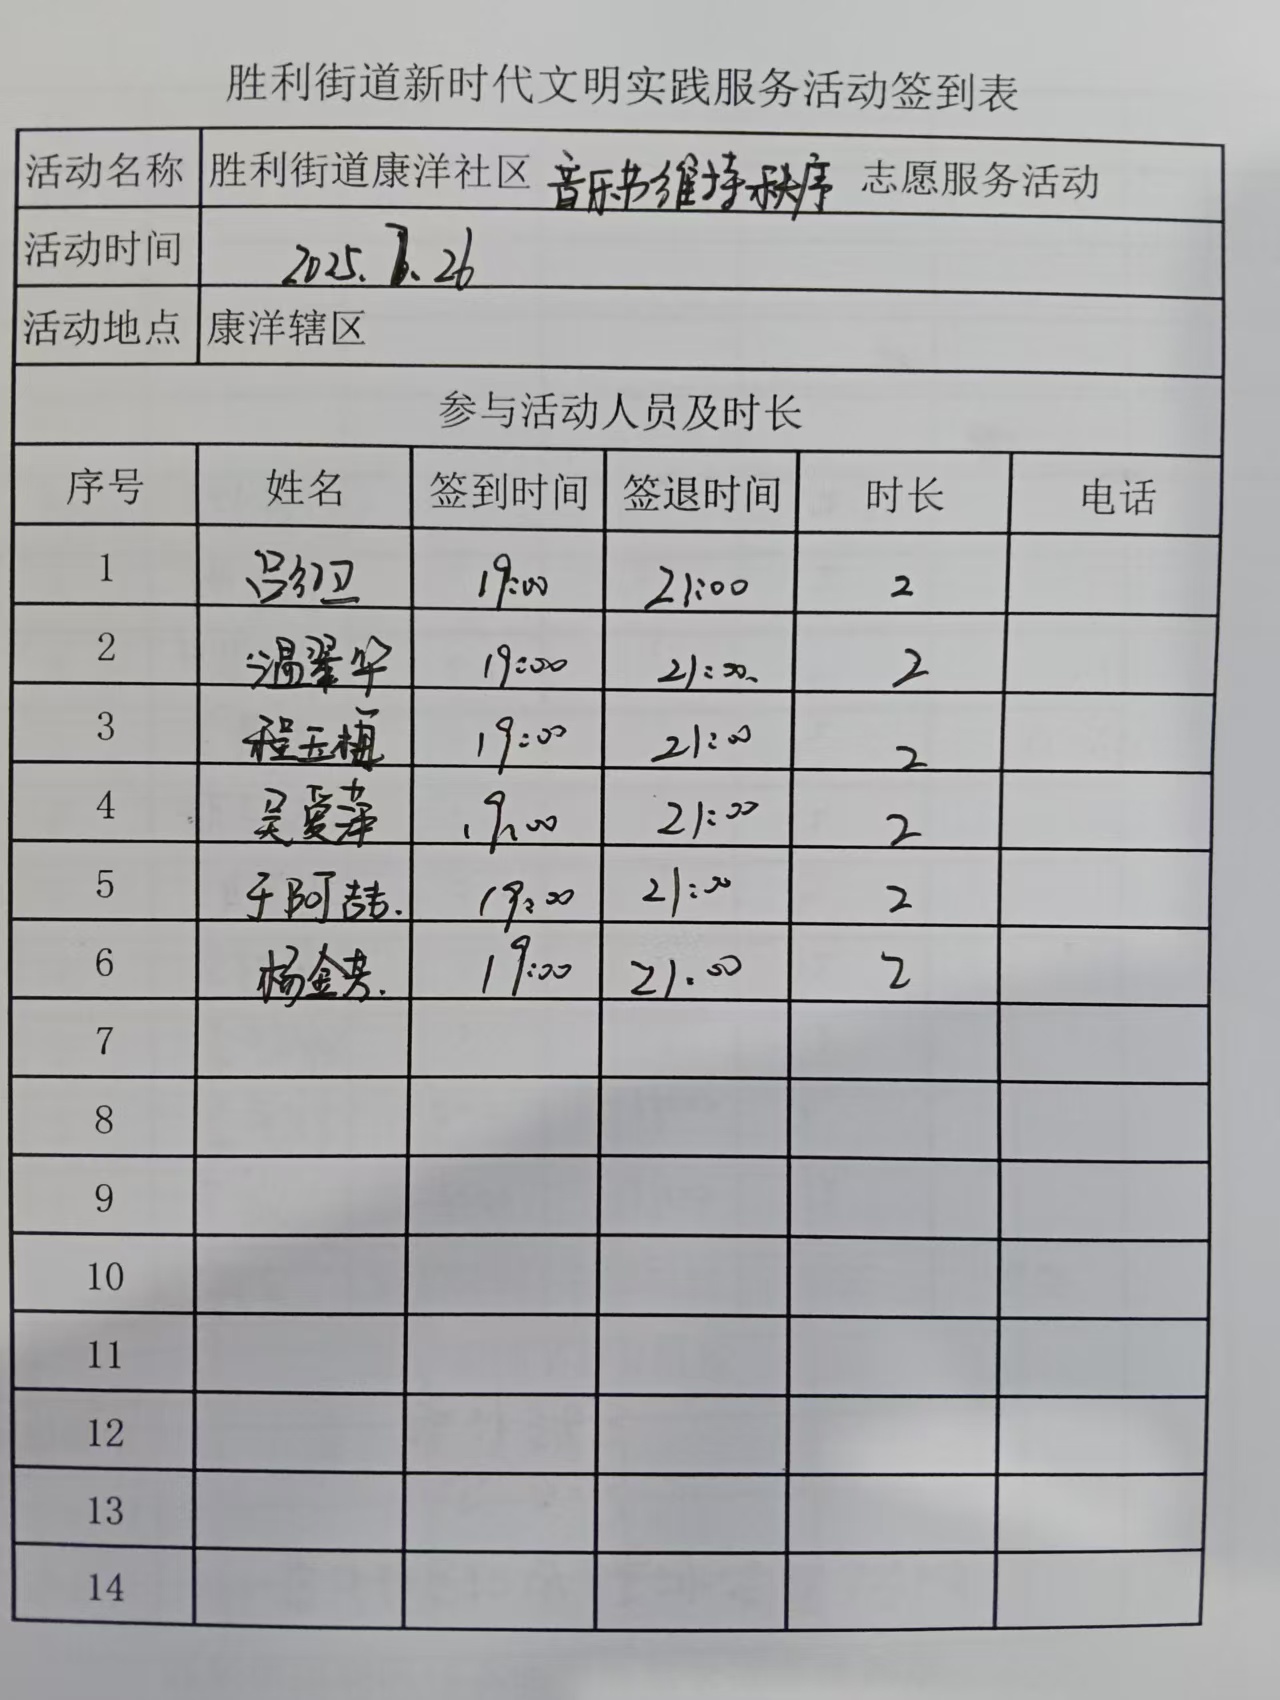 胜利街道新时代文明实践服务活动签到表
活动名称 胜利街道康洋社区 音乐节维持秩序 志愿服务活动
活动时间 2025.7.26
活动地点 康洋辖区
参与活动人员及时长
序号 姓名 签到时间 签退时间 时长 电话
1 吕红卫 19:00 21:00 2
2 温翠华 19:00 21:00 2
3 程玉梅 19:00 21:00 2
4 吴爱萍 19:00 21:00 2
5 于阿喆 19:00 21:00 2
6 杨金芳 19:00 21:00 2
7
8
9
10
11
12
13
14